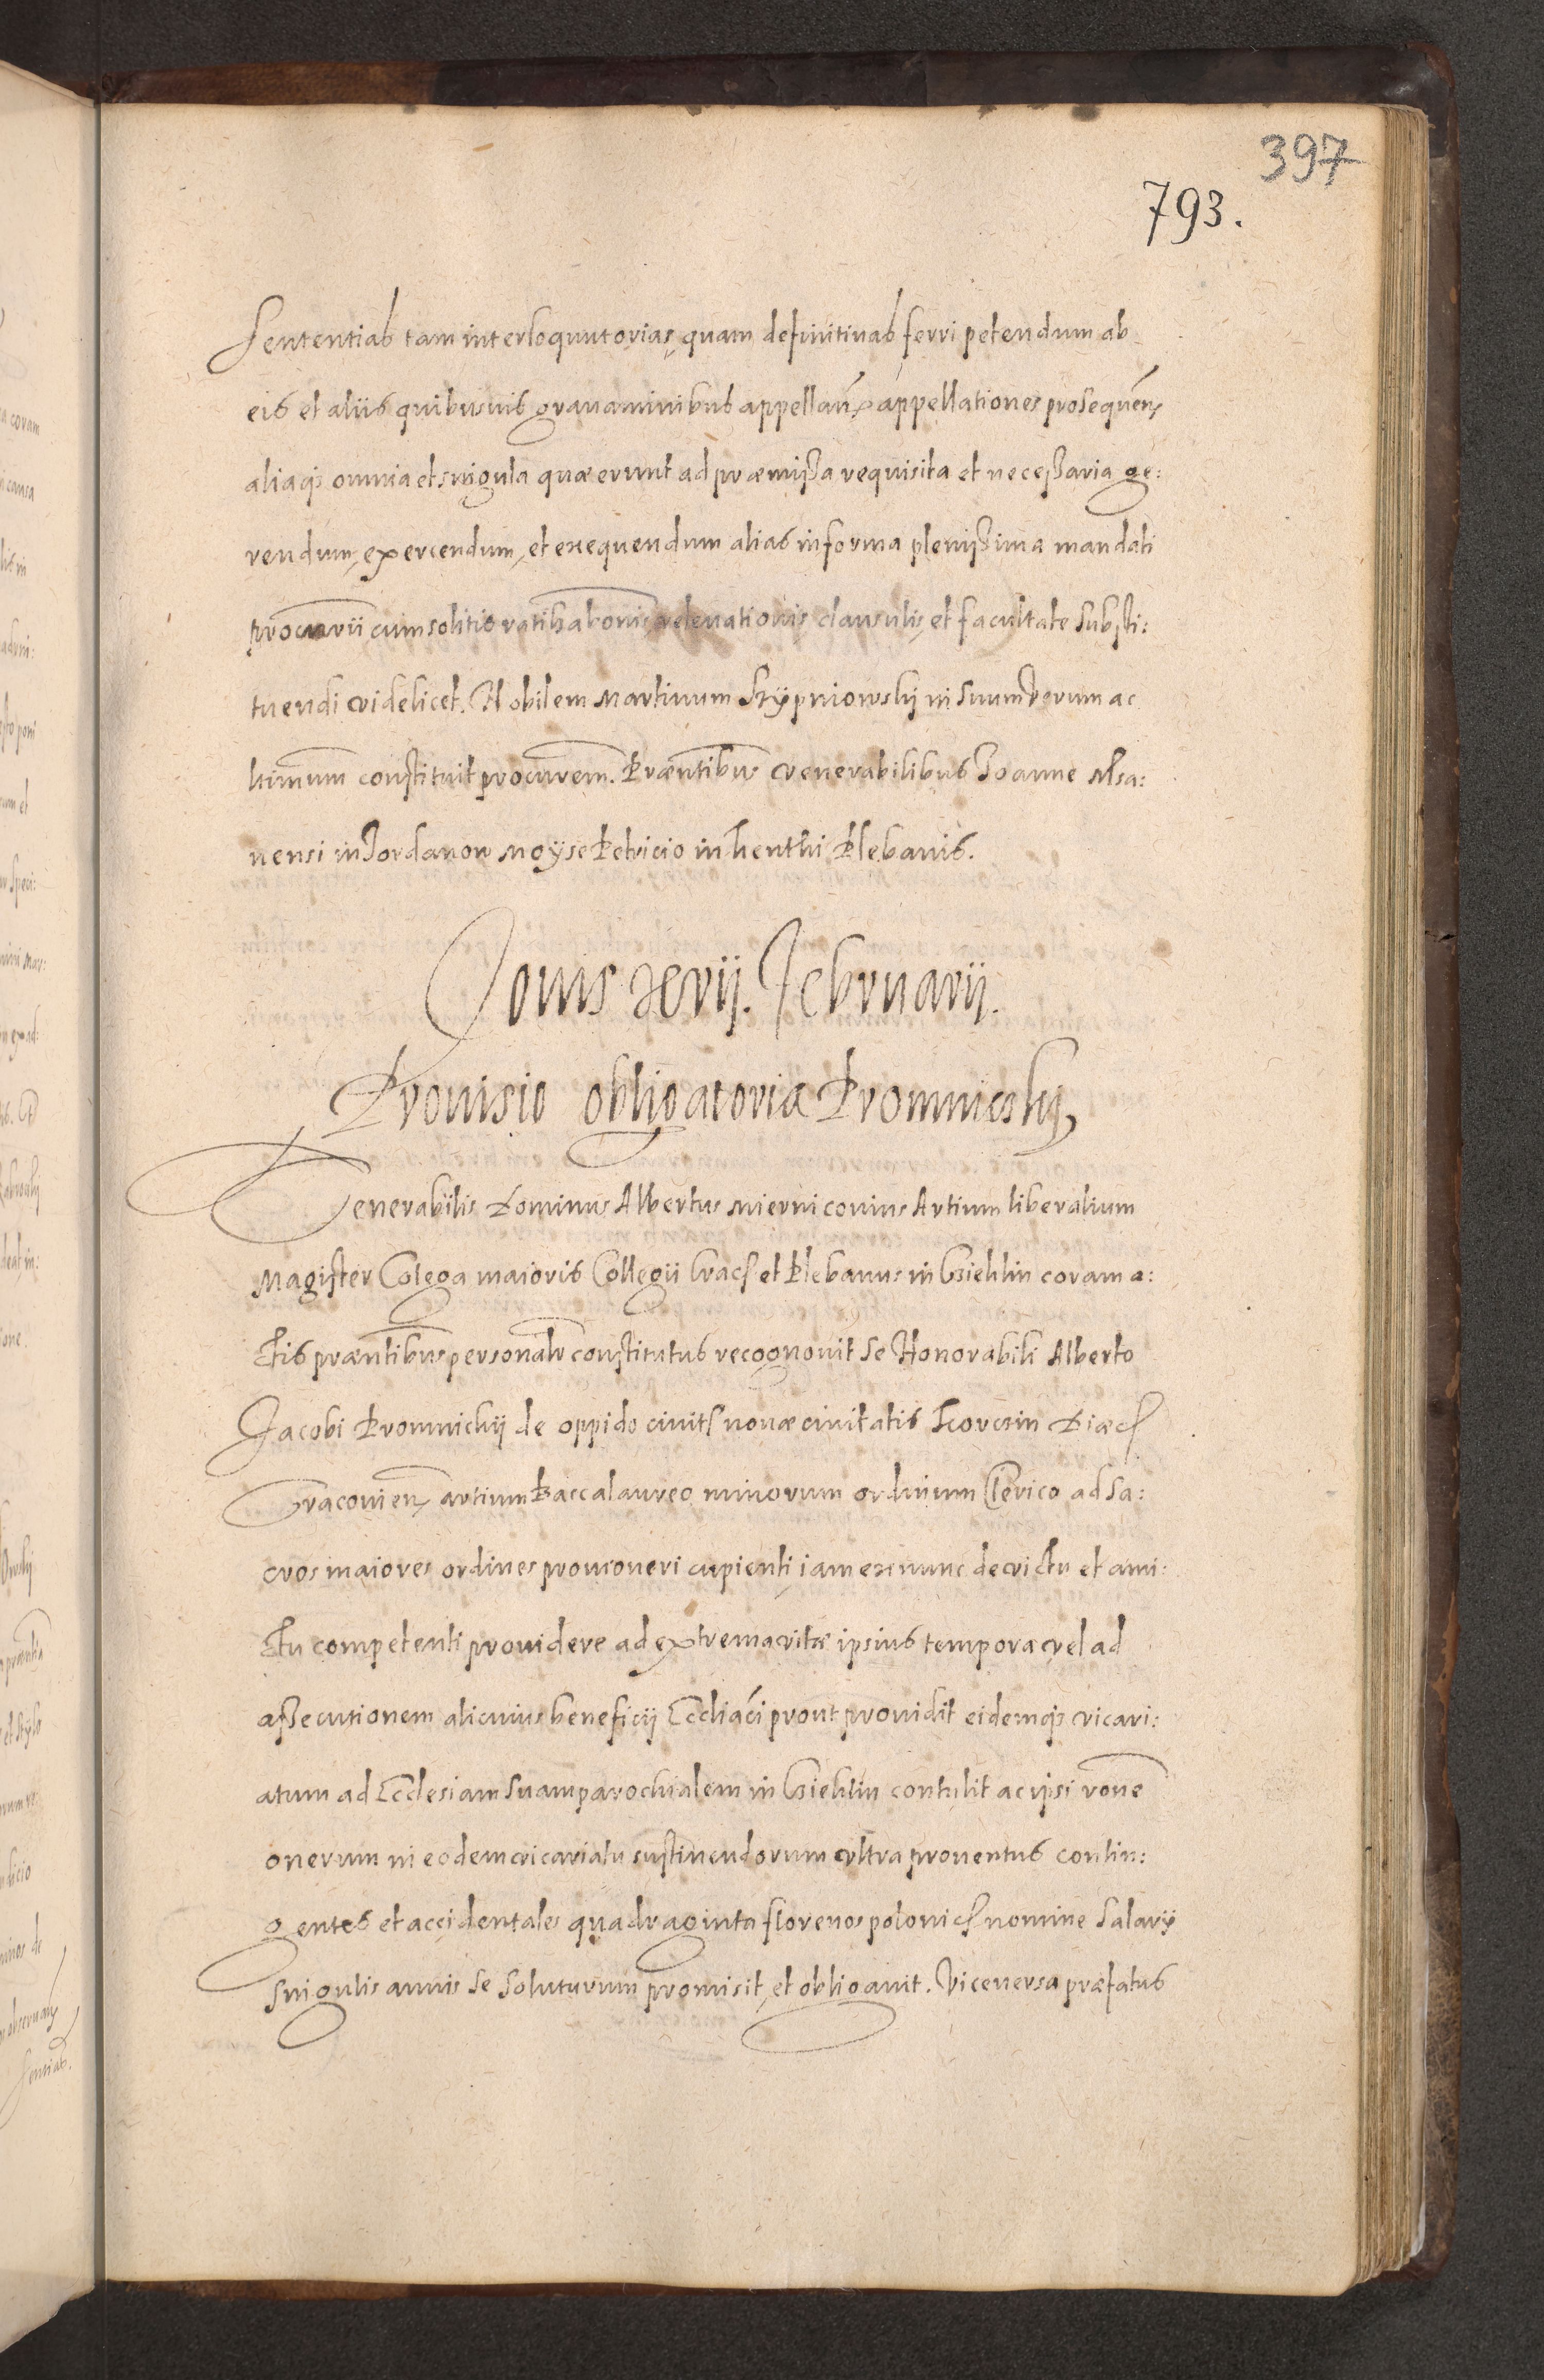 397
793.
Sententias tam interloquutorias, quam definitiuas ferri petendum ab
eis et aliis quibusuis grauaminibus appellan̄, appellationes prosequen̄,
aliaqз omnia et singula quæ erunt ad præmißa requisita et neceßaria ge:
rendum, exercendum, et exequendum alias in forma plenißima mandati
procurrii cum solitis ratihabonis, releuationis clausulis, et facultate substi:
tuendi videlicet. Nobilem Martinum Skrzypniowskij in suum verum ac
ltimum constituit procurem. Præntibus venerabilibus Joanne Msa:
nensi in Jordanow Moyse Petricio in Lenthi Plebanis.
Jouis xxvij. Februarij.
Prouisio obligatoria Promnicskij
Venerabilis Dominus Albertus Miernicouius Artium liberalium
Magister Colega maioris Collegii Crac et Plebanus in Biehlin coram a:
ctis præntibus personalr constitutus recognouit se Honorabili Alberto
Jacobi Promnickij de oppido ciuit nouæ ciuitatis Korcsin Diæc
Cracouien, artium Baccalaureo minorum ordinum Clerico ad sa:
cros maiores ordines promoueri cupienti, iam ex nunc de victu et ami:
ctu competenti prouidere ad extrema vitæ ipsius tempora, vel ad
assecutionem alicuius beneficij Eccliaci prout prouidit eidemqз vicari:
atum ad Ecclesiam suam parochialem in Biehlin contulit ac ipsi rone
onerum in eodem vicariatu sustinendorum vltra prouentus contin:
gentes et accidentales quadraginta florenos polonic nomine salarij
singulis annis se soluturum promisit, et obligauit. Viceuersa præfatus